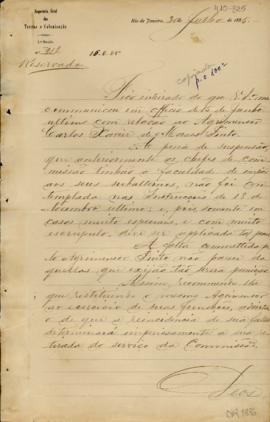 Inspectoria Geral
das
Terras e Colonisação
Rio de Janeiro, 3 de Julho de 1885.
Reservado
Fico inteirado do que V. S.ª me
communicou em officio de de Junho
ultimo com relação ao Agrimensor
Carlos Xavier de Pinto.
A pena de suspensão,
que anteriormente os chefes de com
missão tinhão a faculdade de impôr
aos seus subalternos, não foi con
templada nas Instrucções de 18 de
ultimo e, pois, somente em
casos muito especiaes, e com muito
escrupulo, deve ser applicada tal pena.
A falta commettida pe
lo Agrimensor Pinto não passou da
quellas que tal punição
Assim, recommendo-lhe
que restituindo o mesmo Agrimensor
ao exercicio de suas funcções,
o de que a reincidencia de sua falta
determinará a sua re
tirada do serviço da Commissão.
Deos